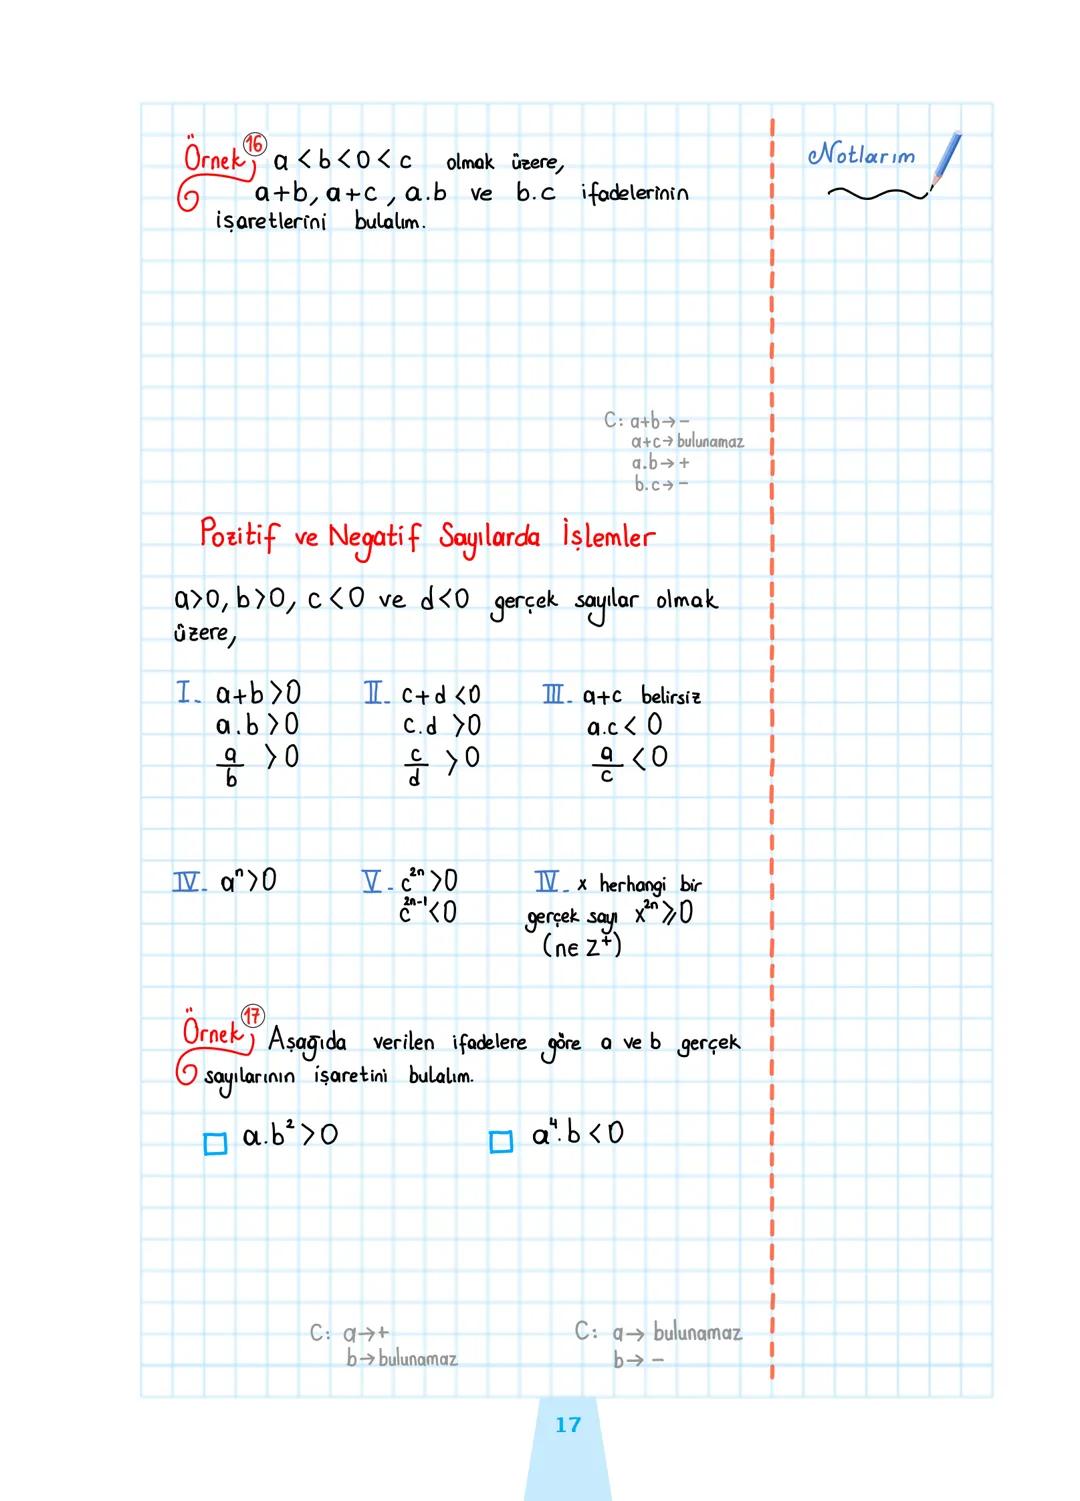 Örnek 16 a<b<0<c olmak üzere,
a+b, a+c, a.b ve b.c ifadelerinin
işaretlerini bulalım.
Notlarım
C: a+b→-
a+c→bulunamaz
a.b→+
b.c→-
Pozitif ve Negatif Sayılarda İşlemler
a>0, b>0, c<0 ve d<0 gerçek sayılar olmak
üzere,
I. a+b>0 II. c+d<0 III. a+c belirsiz
a.b>0 c.d>0 a.c<0
a/b >0 c/d >0 a/c <0
IV. aⁿ>0 V. c²ⁿ>0 IV. x herhangi bir
c²ⁿ⁻¹<0 gerçek sayı x²ⁿ≥0
(n∈Z⁺)
Örnek 17 Aşağıda verilen ifadelere göre a ve b gerçek
sayılarının işaretini bulalım.
a.b²>0 a⁴.b<0
C: a→+ C: a→ bulunamaz
b→bulunamaz b→ -
17